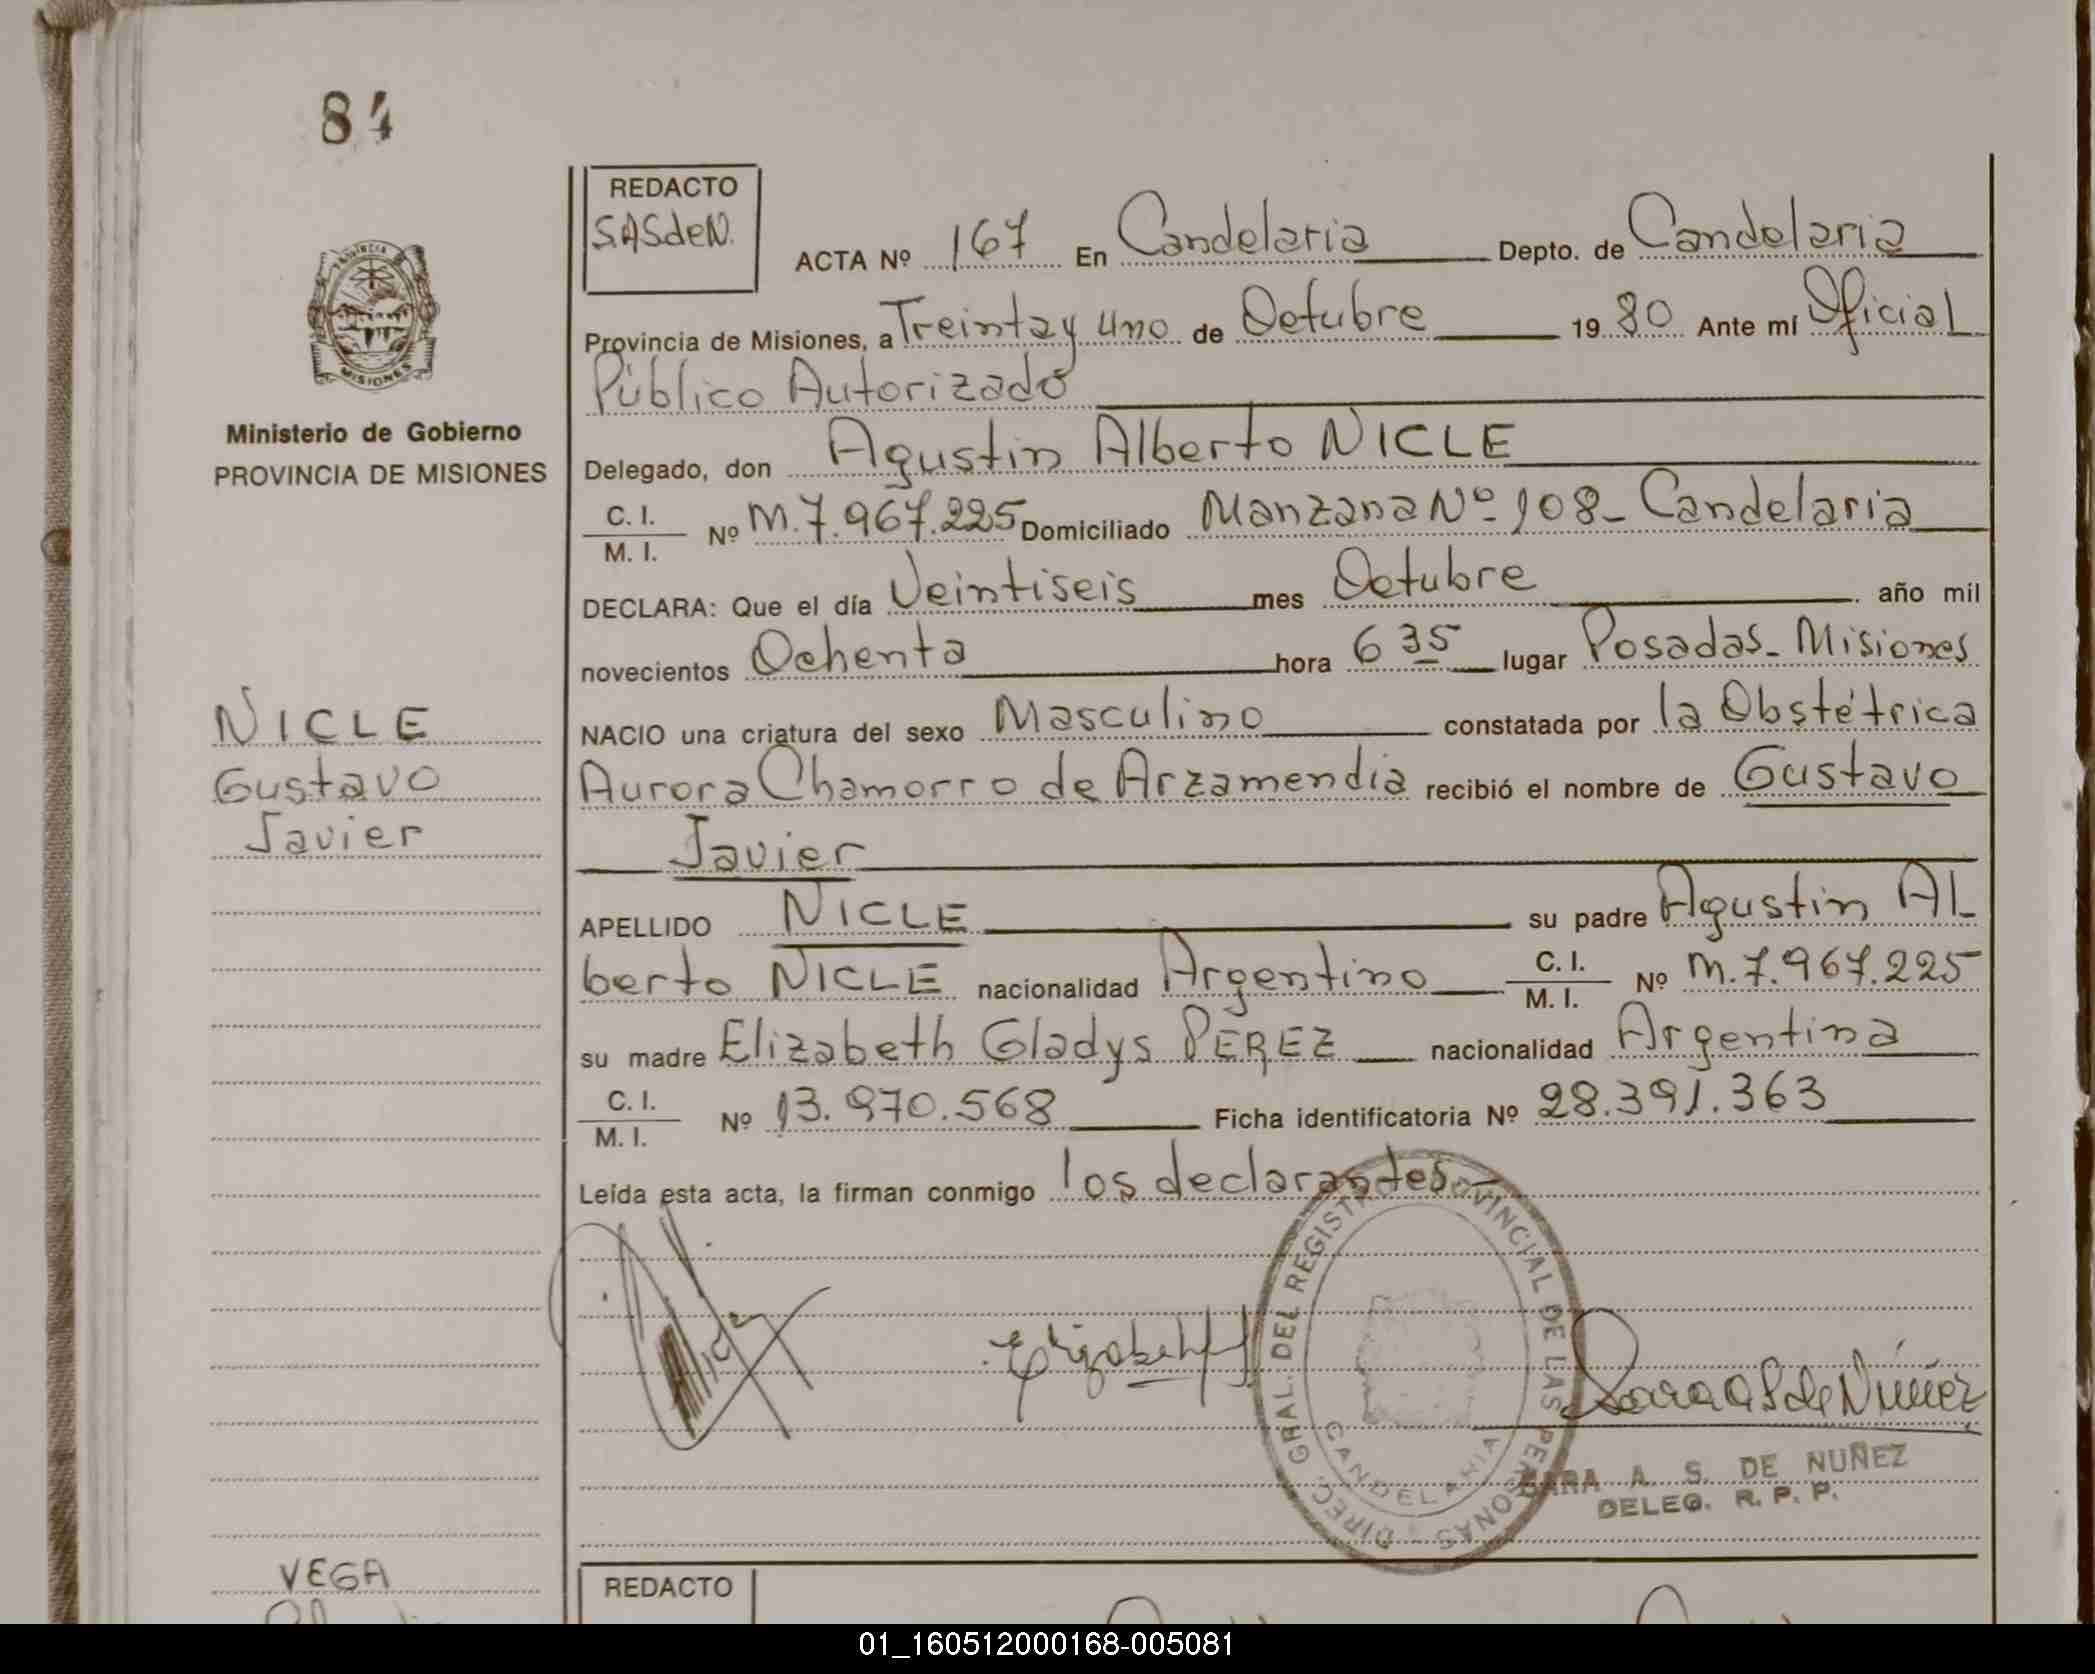 84
REDACTO
S.A.S de N.
ACTA Nº 167 En Candelaria Depto. de Candelaria
Provincia de Misiones, a Treinta y Uno de Octubre 1980 Ante mí Oficial
Público Autorizado
Delegado, don Agustin Alberto NICLE
C. I.
M. I. Nº M.7.967.225 Domiciliado Manzana Nº 108 - Candelaria
DECLARA: Que el día Veintiseis mes Octubre año mil
novecientos Ochenta hora 6 35 lugar Posadas - Misiones
NACIO una criatura del sexo Masculino constatada por la Obstétrica
Aurora Chamorro de Arzamendia recibió el nombre de Gustavo
Javier
APELLIDO NICLE su padre Agustin Al-
berto NICLE nacionalidad Argentino C. I. M. I. Nº M.7.967.225
su madre Elizabeth Gladys PEREZ nacionalidad Argentina
C. I.
M. I. Nº 13.970.568 Ficha identificatoria Nº 28.391.363
Leída esta acta, la firman conmigo los declarantes.-
Elizabeth
Sara A S de Núñez
DIREC. GRAL. DEL REGISTRO PROVINCIAL DE LAS PERSONAS
CANDELARIA
SARA A. S. DE NUÑEZ
DELEG. R. P. P.
PROVINCIA
MISIONES
Ministerio de Gobierno
PROVINCIA DE MISIONES
NICLE
Gustavo
Javier
VEGA
REDACTO
01_160512000168-005081